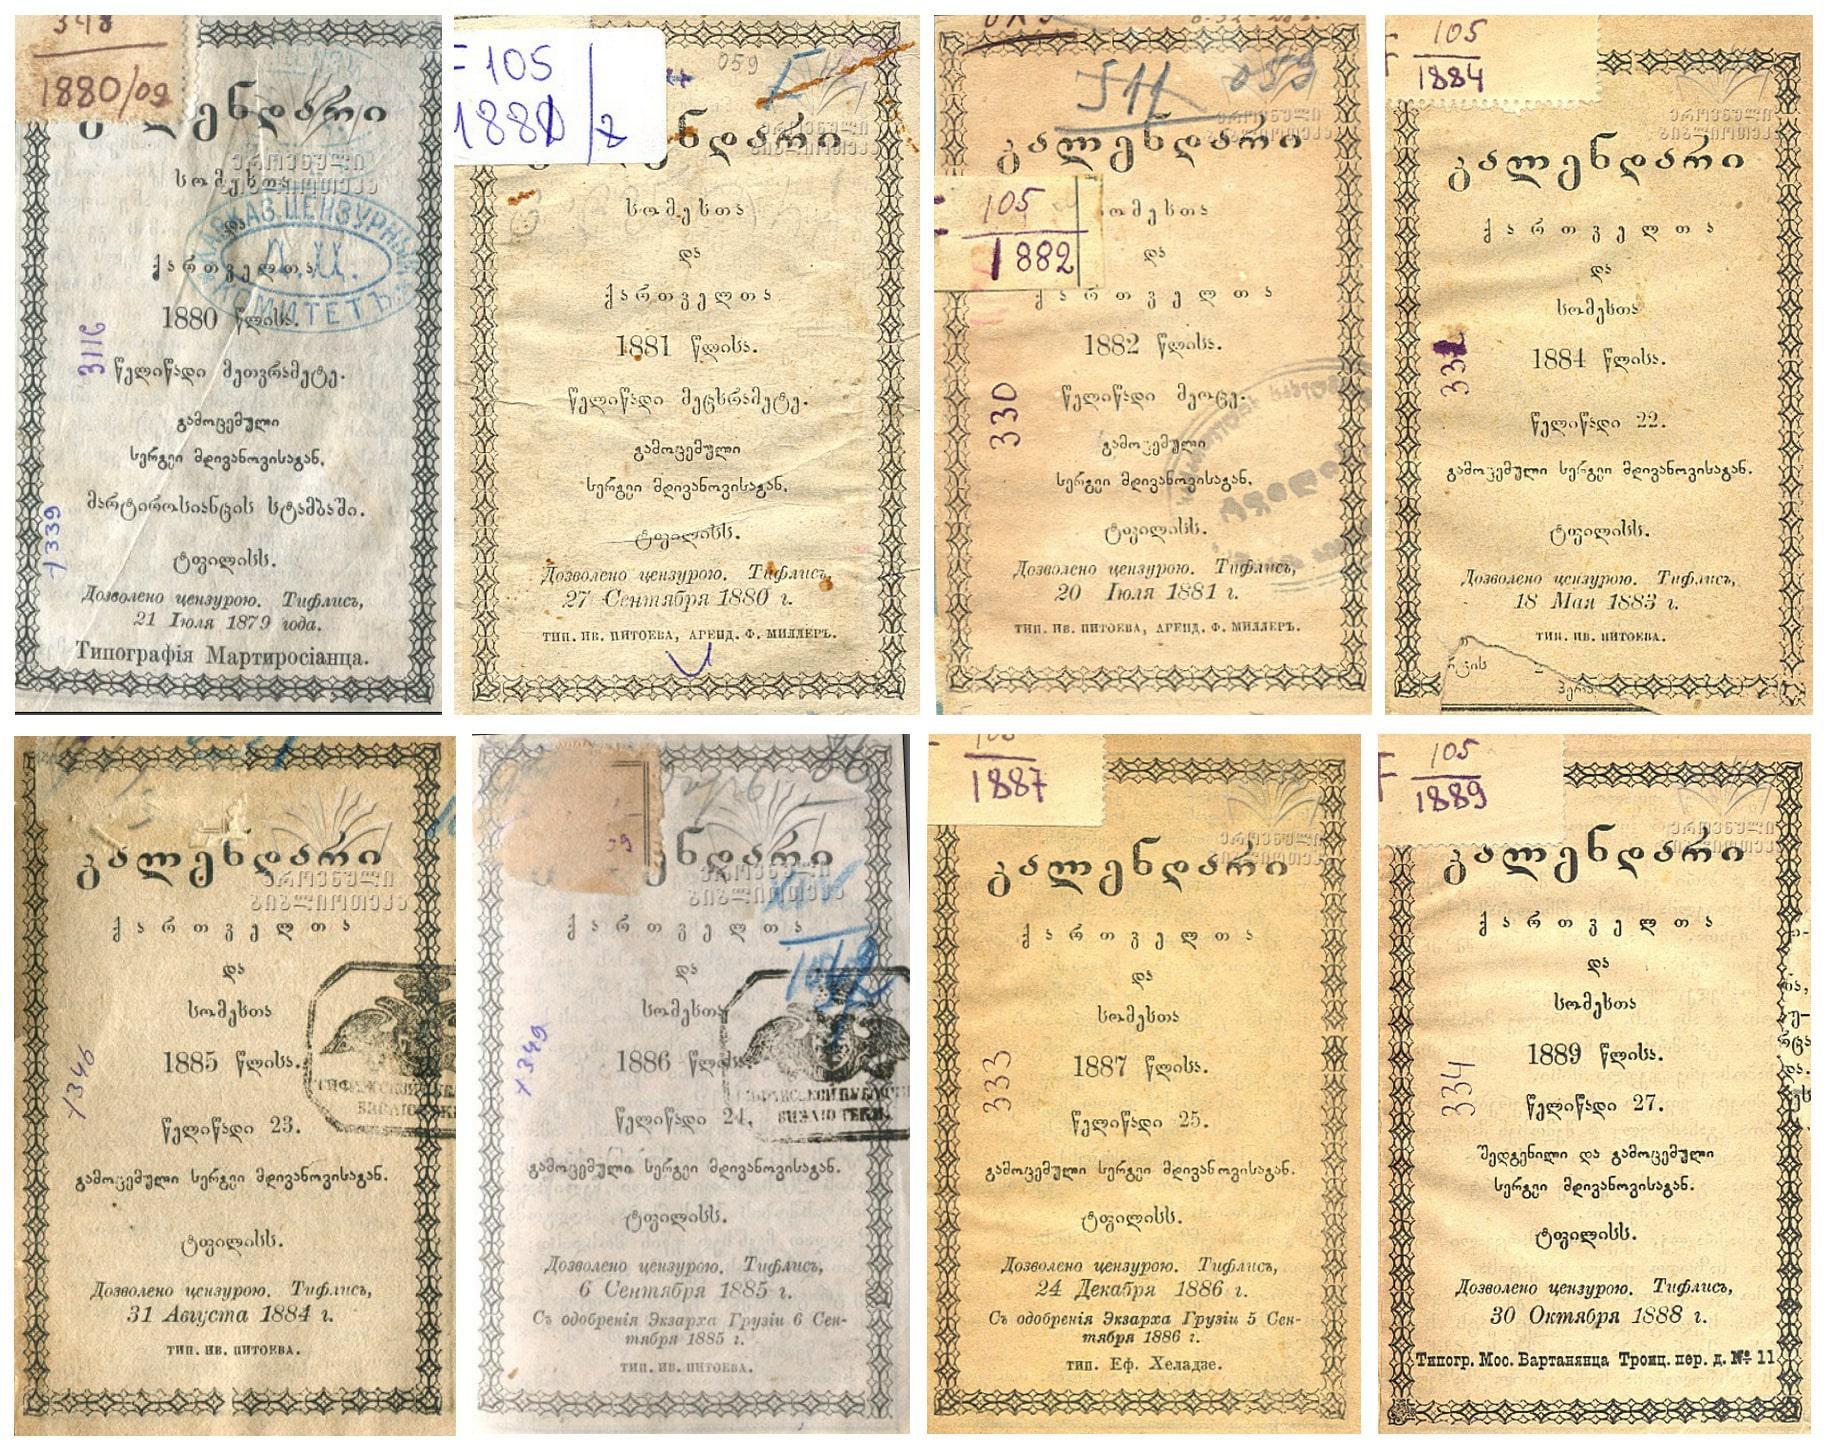 348
1880/09
კალენდარი
სომეხთა
და
ქართველთა
1880 წლისა.
წელიწადი მეთვრამეტე.
გამოცემული
სერგეი მდივანოვისაგან.
მარტიროსიანცის სტამბაში.
ტფილისს.
Дозволено цензурою. Тифлисъ,
21 Іюля 1879 года.
Типографія Мартиросіанца.
КАВКАЗ. ЦЕНЗУРНЫЙ
КОМИТЕТЪ
3116
1339
ეროვნული
ბიბლიოთეკა
F 105
1881/2
059
კალენდარი
სომეხთა
და
ქართველთა
1881 წლისა.
წელიწადი მეცხრამეტე.
გამოცემული
სერგეი მდივანოვისაგან.
ტფილისს.
Дозволено цензурою. Тифлисъ,
27 Сентября 1880 г.
ТИП. ИВ. ПИТОЕВА, АРЕНД. Ф. МИЛЛЕРЪ.
ეროვნული
ბიბლიოთეკა
059
კალენდარი
105
1882
სომეხთა
და
ქართველთა
1882 წლისა.
წელიწადი მეოცე.
გამოცემული
სერგეი მდივანოვისაგან.
ტფილისს.
Дозволено цензурою. Тифлисъ,
20 Іюля 1881 г.
ТИП. ИВ. ПИТОЕВА, АРЕНД. Ф. МИЛЛЕРЪ.
330
ეროვნული
ბიბლიოთეკა
F 105
1884
კალენდარი
ქართველთა
და
სომეხთა
1884 წლისა.
წელიწადი 22.
გამოცემული სერგეი მდივანოვისაგან.
ტფილისს.
Дозволено цензурою. Тифлисъ,
18 Мая 1883 г.
ТИП. ИВ. ПИТОЕВА.
ეროვნული
ბიბლიოთეკა
კალენდარი
ქართველთა
და
სომეხთა
1885 წლისა.
წელიწადი 23.
გამოცემული სერგეი მდივანოვისაგან.
ტფილისს.
Дозволено цензурою. Тифлисъ,
31 Августа 1884 г.
ТИП. ИВ. ПИТОЕВА.
1346
ეროვნული
ბიბლიოთეკა
კალენდარი
ქართველთა
და
სომეხთა
1886 წლისა.
წელიწადი 24.
გამოცემული სერგეი მდივანოვისაგან.
ტფილისს.
Дозволено цензурою. Тифлисъ,
6 Сентября 1885 г.
Съ одобренія Экзарха Грузіи 6 Сен-
тября 1885 г.
ТИП. ИВ. ПИТОЕВА.
1349
ეროვნული
ბიბლიოთეკა
105
1887
კალენდარი
ქართველთა
და
სომეხთა
1887 წლისა.
წელიწადი 25.
გამოცემული სერგეი მდივანოვისაგან.
ტფილისს.
Дозволено цензурою. Тифлисъ,
24 Декабря 1886 г.
Съ одобренія Экзарха Грузіи 5 Сен-
тября 1886 г.
тип. Еф. Хеладзе.
333
ეროვნული
ბიბლიოთეკა
F 105
1889
კალენდარი
ქართველთა
და
სომეხთა
1889 წლისა.
წელიწადი 27.
შედგენილი და გამოცემული
სერგეი მდივანოვისაგან.
ტფილისს.
Дозволено цензурою. Тифлисъ,
30 Октября 1888 г.
Типогр. Мос. Вартанянца Троиц. пер. д. № 11
334
ეროვნული
ბიბლიოთეკა